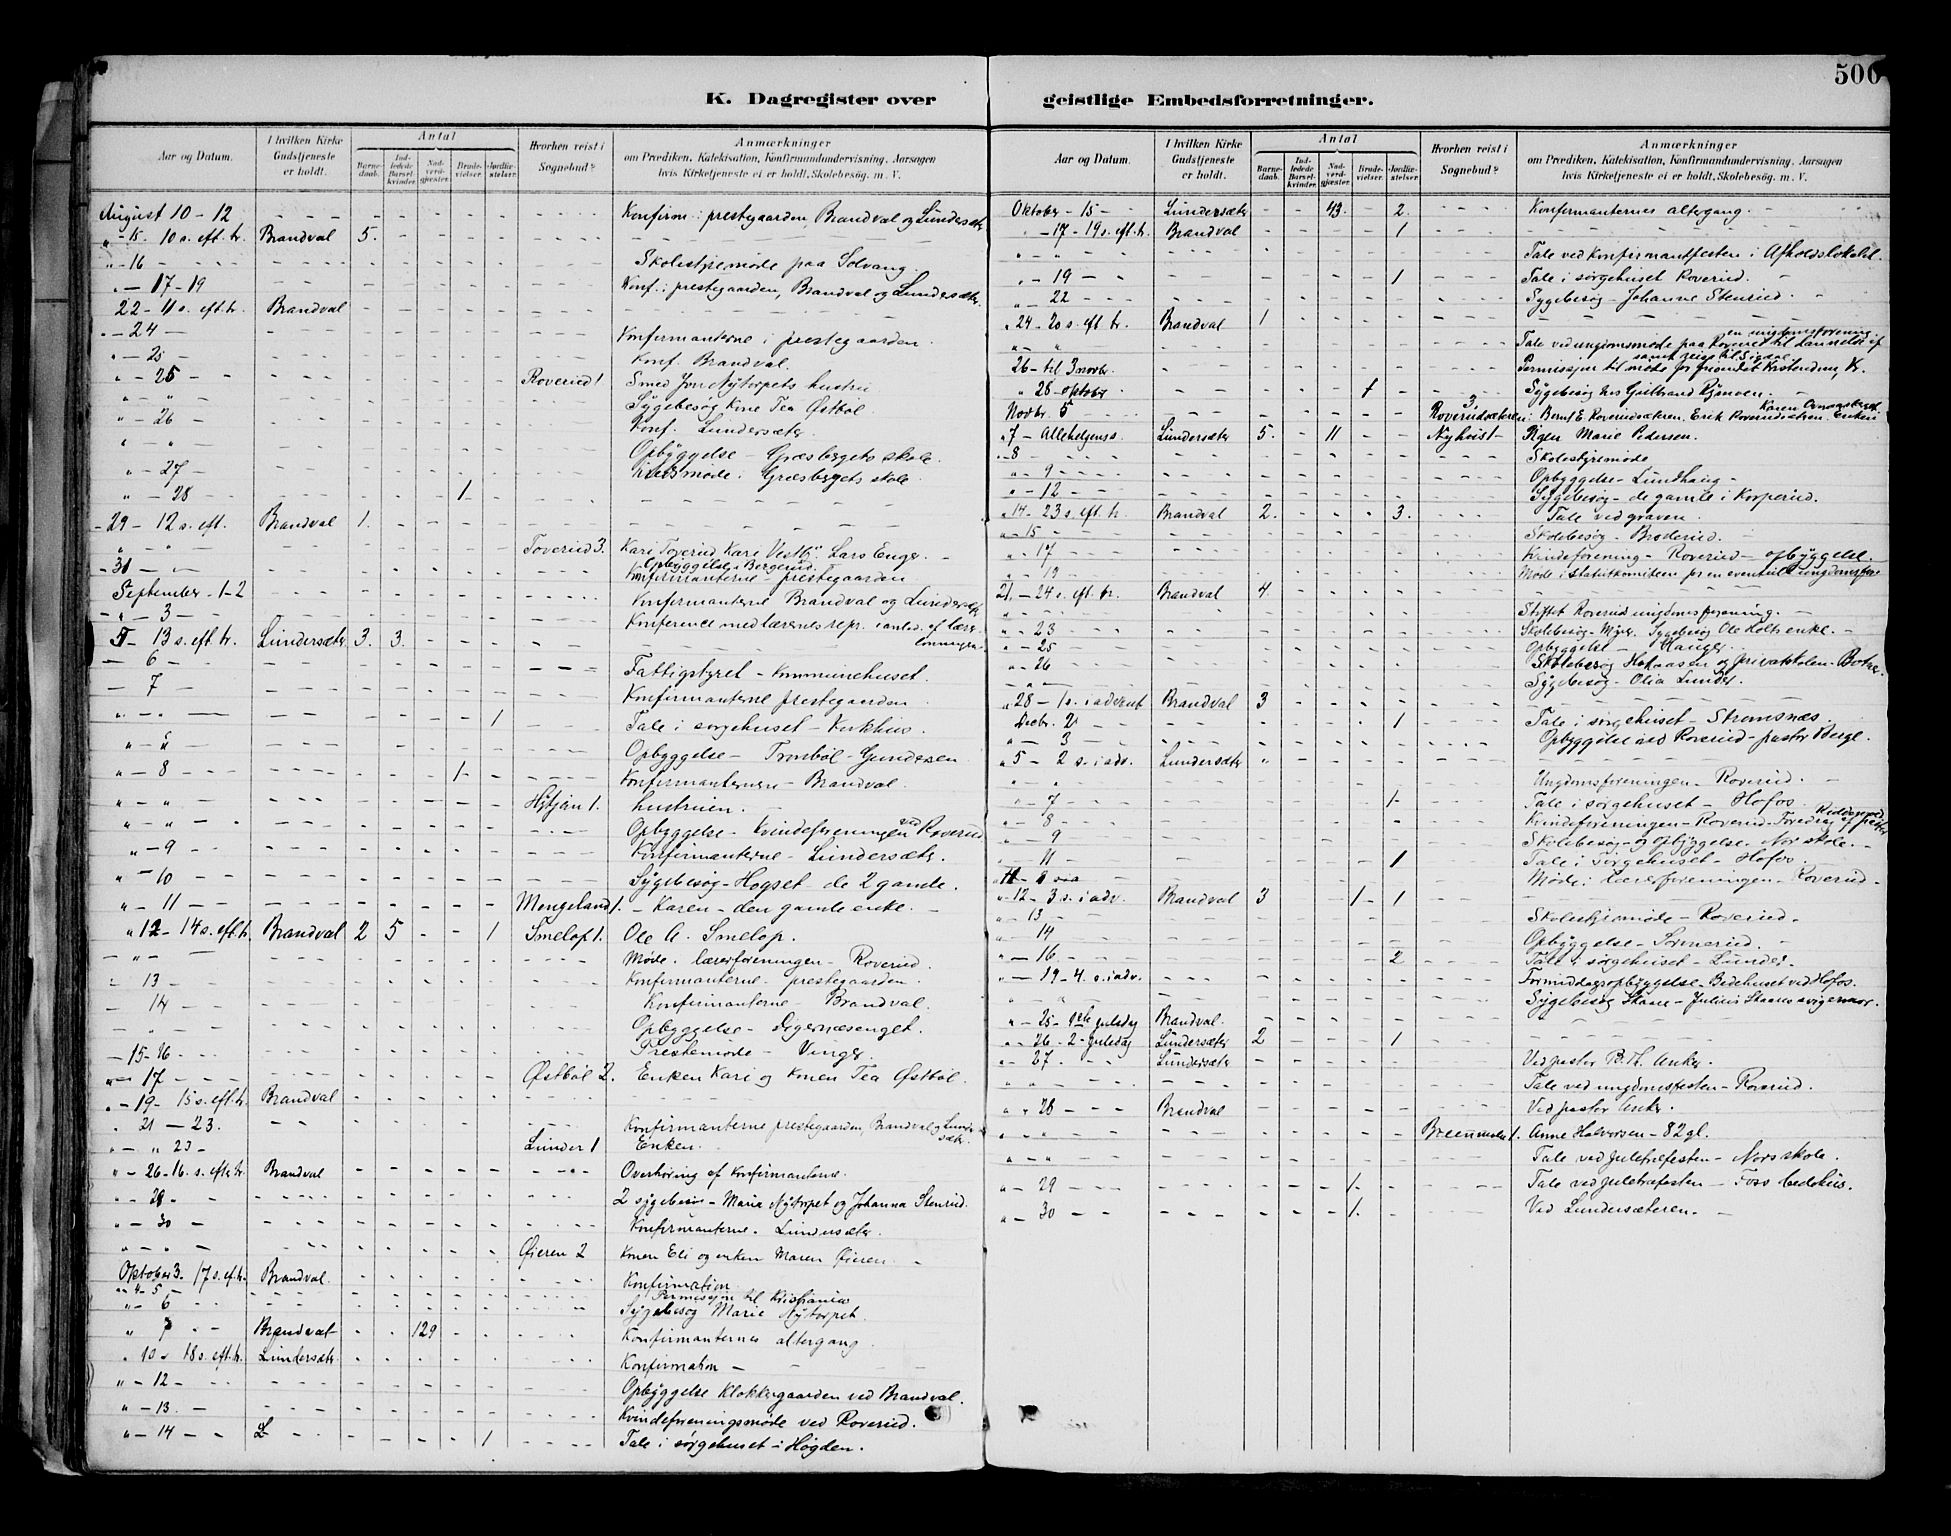 500
K. Dagregister over geistlige Embedsforretninger.
Aar og Datum. I hvilken Kirke Gudstjeneste er holdt. Antal Barnedaab. Indledede Barselkvinder. Nadverdgjester. Brudevielser. Jordfæstelser. Hvorhen reist i Sognebud? Anmærkninger om Prædiken, Katekisation, Konfirmandundervisning, Aarsagen hvis Kirketjeneste ei er holdt, Skolebesøg. m. V.
August 10 - 12 - - - Konfirm. i prestegaarden, Brandval og Lundersæter
" - 15. 10 s. eft. tr. Brandval 5.
" - 16 Skolestyremøde paa Solvang.
" - 17 - 19 Konf. i prestegaarden, Brandval og Lundersæter.
22 - 11 s. eft. tr. Brandval
" - 24 - Konfirmanterne i prestegaarden.
" - 25 - Konf. Brandval.
" - 25 - Roverud 1 Smed Jon Nytorpets hustru
" " - Sygebesøg Kone Tea Østbøl
" - 26 - Konf. Lundersæter.
" - " - Opbyggelse - Græsbergets skole.
" - 27 - møde i Græsbergets skole.
" - 28 1
- 29 - 12 s. eft. Brandval 1.
" - " - Toverud 3. Kari Toverud Kari Vestby. Lars Enger.
Opbyggelse i Bergerud.
- 31 - Konfirmanterne - prestegaarden
September - 1 - 2 Konfirmanterne Brandval og Lundersæter
- " - 3 - Konference med lærernes repr. i anled. af lærer
5 - 13 s. eft. tr. Lundersæter 3. 3.
- 6 - Fattigstyret - Kommunehuset.
- 7 - Konfirmanterne prestegaarden
" - " - 1 Tale i sørgehuset - Kirkhus.
" - " Opbyggelse - Trombøl - Gundersen
" - 8 - - - 1 - Konfirmanterne - Brandval.
" - " - Hytjan 1. hustruen.
" - " - Opbyggelse - Kvindeforeningen ved Roverud
" - 9 - Konfirmanterne - Lundersæter.
" - 10 Sygebesøg - Hogset de 2 gamle.
" - 11 - Mengeland 1. - Karen - den gamle enke. -
" 12 - 14 s. eft. tr. Brandval 2 5 - - 1 Smelop 1. Ole A. Smelop.
- " - Møde. lærerforeningen - Roverud.
- 13 - Konfirmanterne. prestegaarden.
- 14 Konfirmanterne - Brandval.
- " - Opbyggelse - Digernæsenget.
- 15 - 16 Prestemøde - Vinger.
" - 17 Østbøl 2. Enken Kari og Konen Tea Østbøl.
" - 19 - 15 s. eft. tr. Brandval
" 21 - 23. Konfirmanterne prestegaarden, Brandval og Lundersæter.
- " " 23 - Lunder 1 Enken.
" - 26 - 16. s. eft. tr. Brandval Overhøring af konfirmanterne.
" - 28. 2 sygebesøg - Maria Nytorpet og Johanna Stenrud.
" - 30 - Konfirmanterne. Lundersæter.
" - " - Øieren 2 Konen Eli og enken Maren Øieren.
Oktober 3. 17 s. eft. Brandval. Konfirmation
" - 4 - 5 - Permission til Kristiania
" - 6 Sygebesøg Marie Nytorpet.
" 7 Brandval - - 129 Konfirmanternes altergang
" 10 - 18 s. eft. tr. Lundersæter. Konfirmation -
" - 12 - Opbyggelse Klokkergaarden ved Brandval.
" - 13. - Kvindeforeningsmøde ved Roverud.
" - 14 - - 1 Tale i sørgehuset i Høgden.
Aar og Datum. I hvilken Kirke Gudstjeneste er holdt. Antal Barnedaab. Indledede Barselkvinder. Nadverdgjester. Brudevielser. Jordfæstelser. Hvorhen reist i Sognebud? Anmærkninger om Prædiken, Katekisation, Konfirmandundervisning, Aarsagen hvis Kirketjeneste ei er holdt, Skolebesøg. m. V.
Oktober - 15 - Lundersæter - - 43 - 2. Konfirmanternes altergang.
" - 17 - 19 s. eft. tr. Brandval 1
" - " Tale ved Konfirmantfesten i Afholdslokalet.
" - 19 1 Tale i sørgehuset Roverud.
" - 22 Sygebesøg - Johanne Stenrud.
" 24 - 20 s. eft. tr. Brandval 1
" - " Tale ved ungdomsmøde paa Roverud til dannelse af en ungdomsforening.
26 - til 3 novbr. Permission til møde for frivendt Kristendom, Kr. samt reise til Sigdal
" 28 oktober 1 Sygebesøg hos Gulbrand Rjønven.
Novbr 5 Roverudsæteren 3. Bernt E. Roverudsæteren. Erik Roverudsæteren. Enken Karen
" 7 - Allehelgens. Lundersæter 5. - 11 Nyhvist - Pigen Marie Pedersen.
" 8 Skolestyremøde
" - 9 Opbyggelse - Lundhaug -
" - 12 Sygebesøg - de gamle i Korperud.
" 14 - 23 s. eft. tr. Brandval 2. 3. Tale ved graven.
" - 15 Skolebesøg - Broderud.
" - 17 Kvindeforening - Roverud - opbyggelse.
" - 19 Møde i statutkomiteen for en eventuel ungdomsfor
21. - 24 s. eft. tr. Brandval 4.
" Stiftet Roverud ungdomsforening. -
" - 23 Skolebesøg - Myrer. Sygebesøg Ole Holts enke. -
" - 25 Opbyggelse - Hauger.
" - 26 Skolebesøg Hokaasen og privatskolen - Botner.
- " - Sygebesøg - Olia Lunder.
" 28 - 1 s. i advent Brandval 3
Decbr. 2 1 Tale i sørgehuset - Strømsnæs.
" - 3 Opbyggelse ved Roverud - pastor Berge.
" 5 - 2 s. i adv. Lundersæter "
" Ungdomsforeningen - Roverud. -
" - 7 1 Tale i sørgehuset - Hofos.
" - 8 Kvindeforeningen - Roverud. Foredrag af pastor
" - 9 Skolebesøg - og opbyggelse. Nor skole. -
" - 11 1 Tale i sørgehuset - Hofos.
Møde i lærerforeningen - Roverud -
" - 12 - 3 s. i adv. Brandval 3 - 1 - 1
" - 13 Skolestyremøde - Roverud -
" - 14 Opbyggelse - Sormerud. -
" - 16 2 Tale i sørgehuset - Lunder -
" - 19 - 4. s. i adv. Formiddagsopbyggelse - Bedehuset ved Hofos.
" Sygebesøg Skaare - Julius Skaares svigermor.
" - 25 - 1ste juledag Brandval.
" - 26 - 2 - juledag Lundersæter 2 1
" - 27 Lundersæter Ved pastor B. Th. Anker.
" " Tale ved ungdomsfesten - Roverud.
" " 28 - Brandval Ved pastor Anker.
" - " 1. Anne Halvorsen - 82 gl.
" - " Tale ved juletræfesten - Nors skole.
" - 29 1 - Tale ved juletræfesten - Foss bedehus.
" - 30 1. Ved Lundersæteren. -